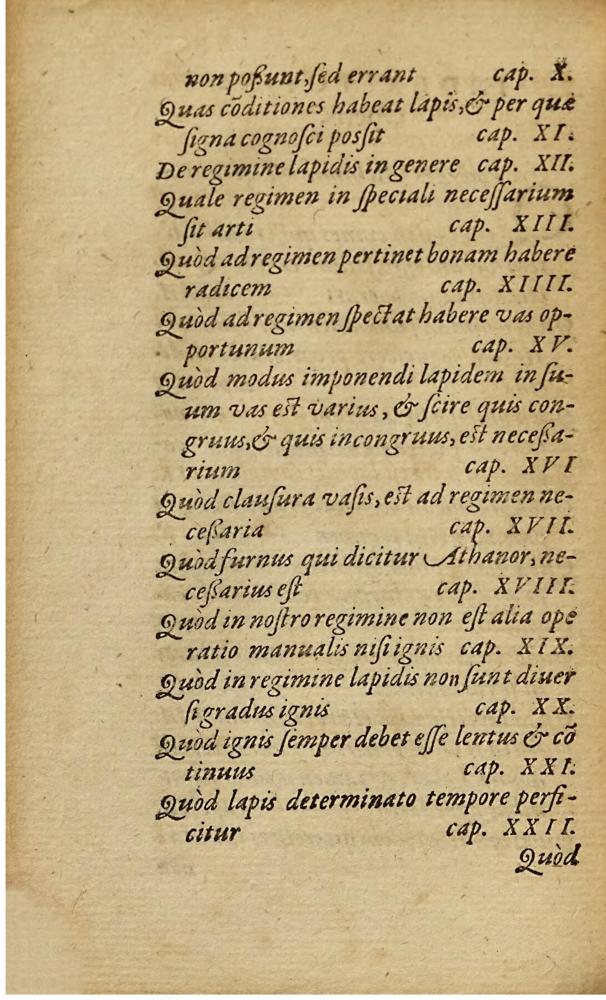 non poßunt, ſed errant cap. X.
Quas cōditiones habeat lapis, & per quæ
ſigna cognoſci poſsit cap. XI.
De regimine lapidis in genere cap. XII.
Quale regimen in ſpeciali neceſſarium
ſit arti cap. XIII.
Quòd ad regimen pertinet bonam habere
radicem cap. XIIII.
Quòd ad regimen ſpectat habere vas op-
portunum cap. XV.
Quòd modus imponendi lapidem in ſu-
um vas est varius, & ſcire quis con-
gruus, & quis incongruus, est neceßa-
rium cap. XVI
Quòd clauſura vaſis, est ad regimen ne-
ceßaria cap. XVII.
Quòd furnus qui dicitur Athanor, ne-
ceßarius est cap. XVIII.
Quòd in noſtro regimine non eſt alia ope
ratio manualis niſi ignis cap. XIX.
Quòd in regimine lapidis non ſunt diuer
ſi gradus ignis cap. XX.
Quòd ignis ſemper debet eſſe lentus & cō
tinuus cap. XXI.
Quòd lapis determinato tempore perfi-
citur cap. XXII.
Quòd